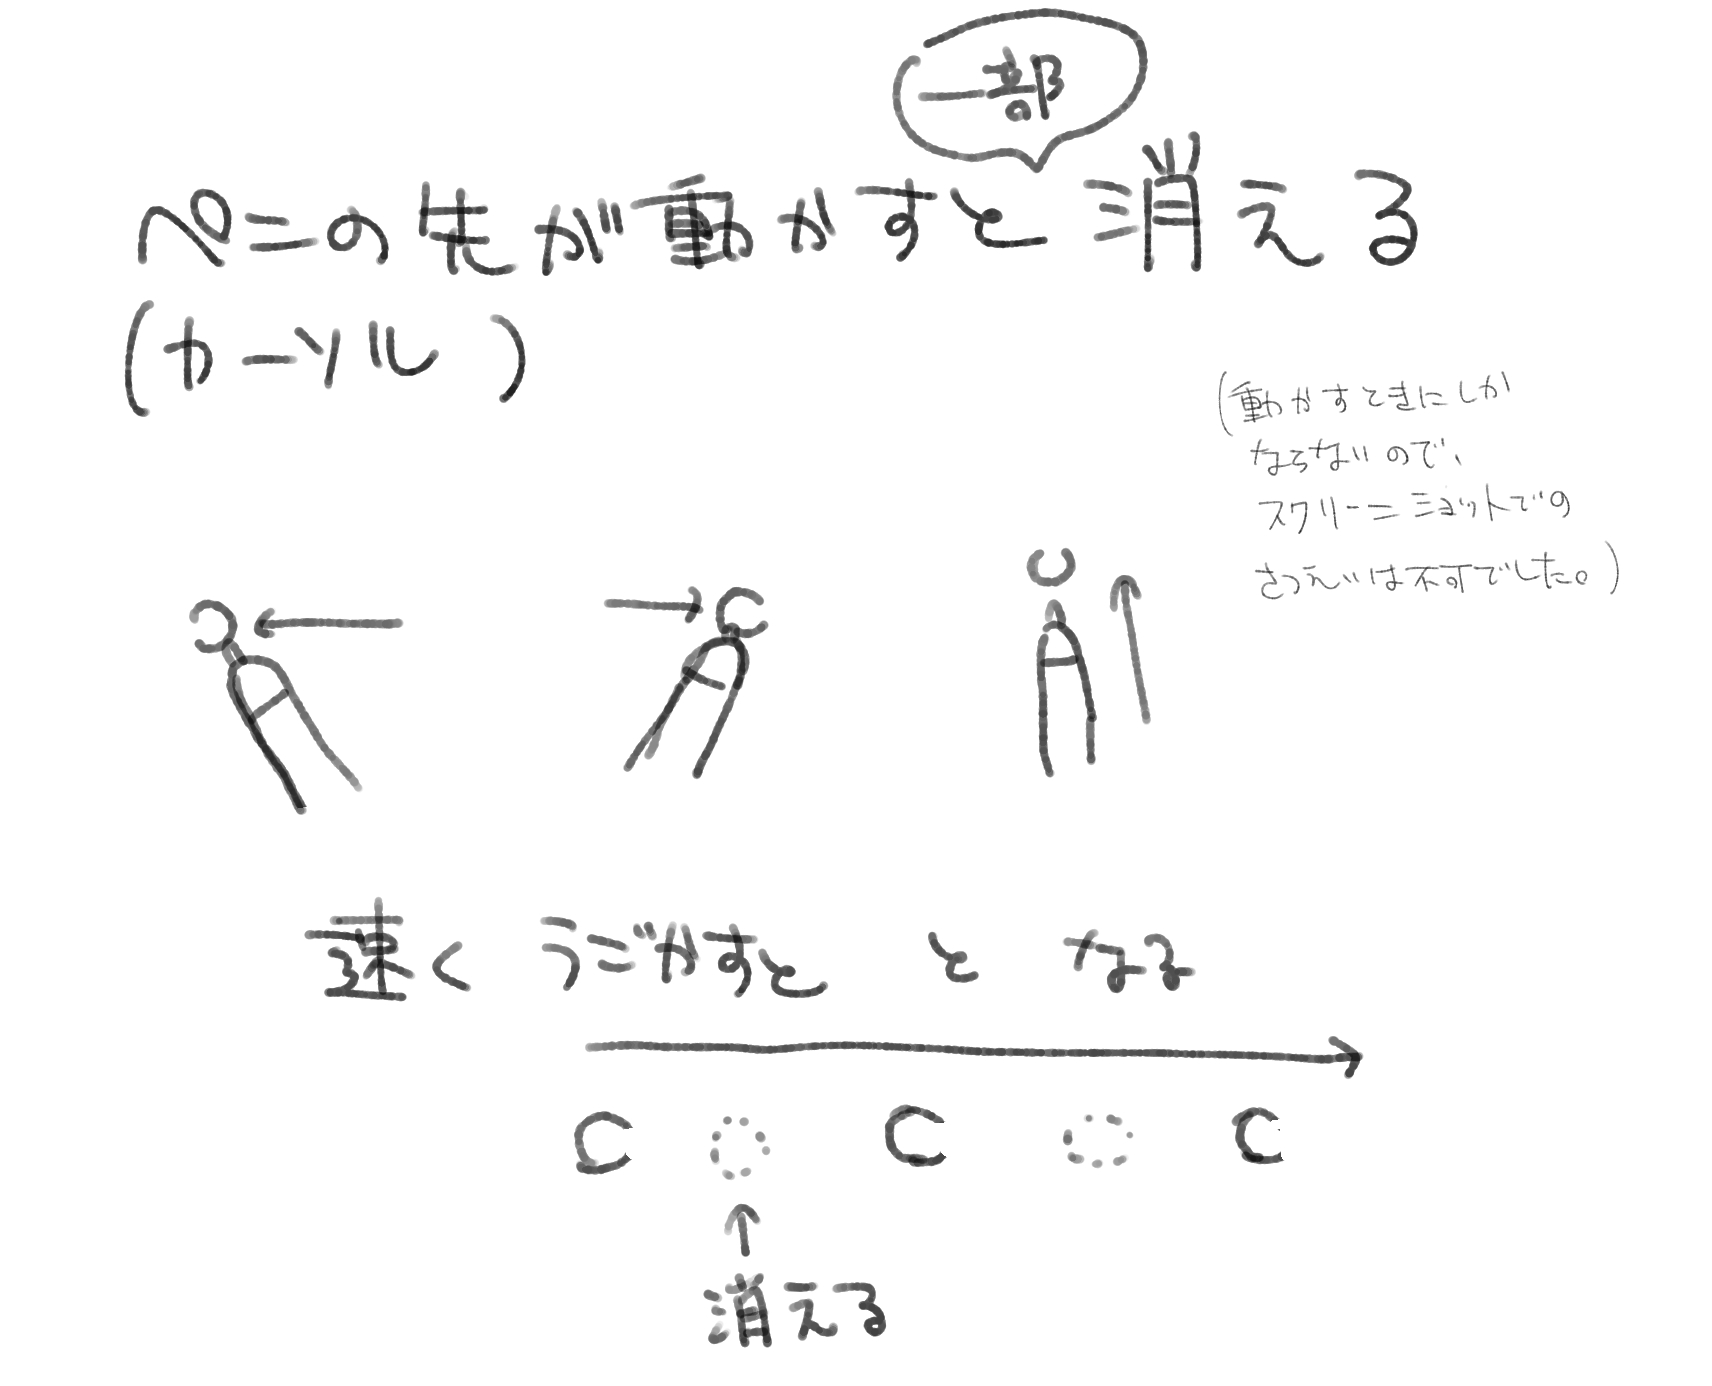 一部
ペンの先が動かすと消える
(カーソル)
(動かすときにしか
ならないので、
スクリーンショットでの
さつえいは不可でした。)
速く うごかすと と なる
消える